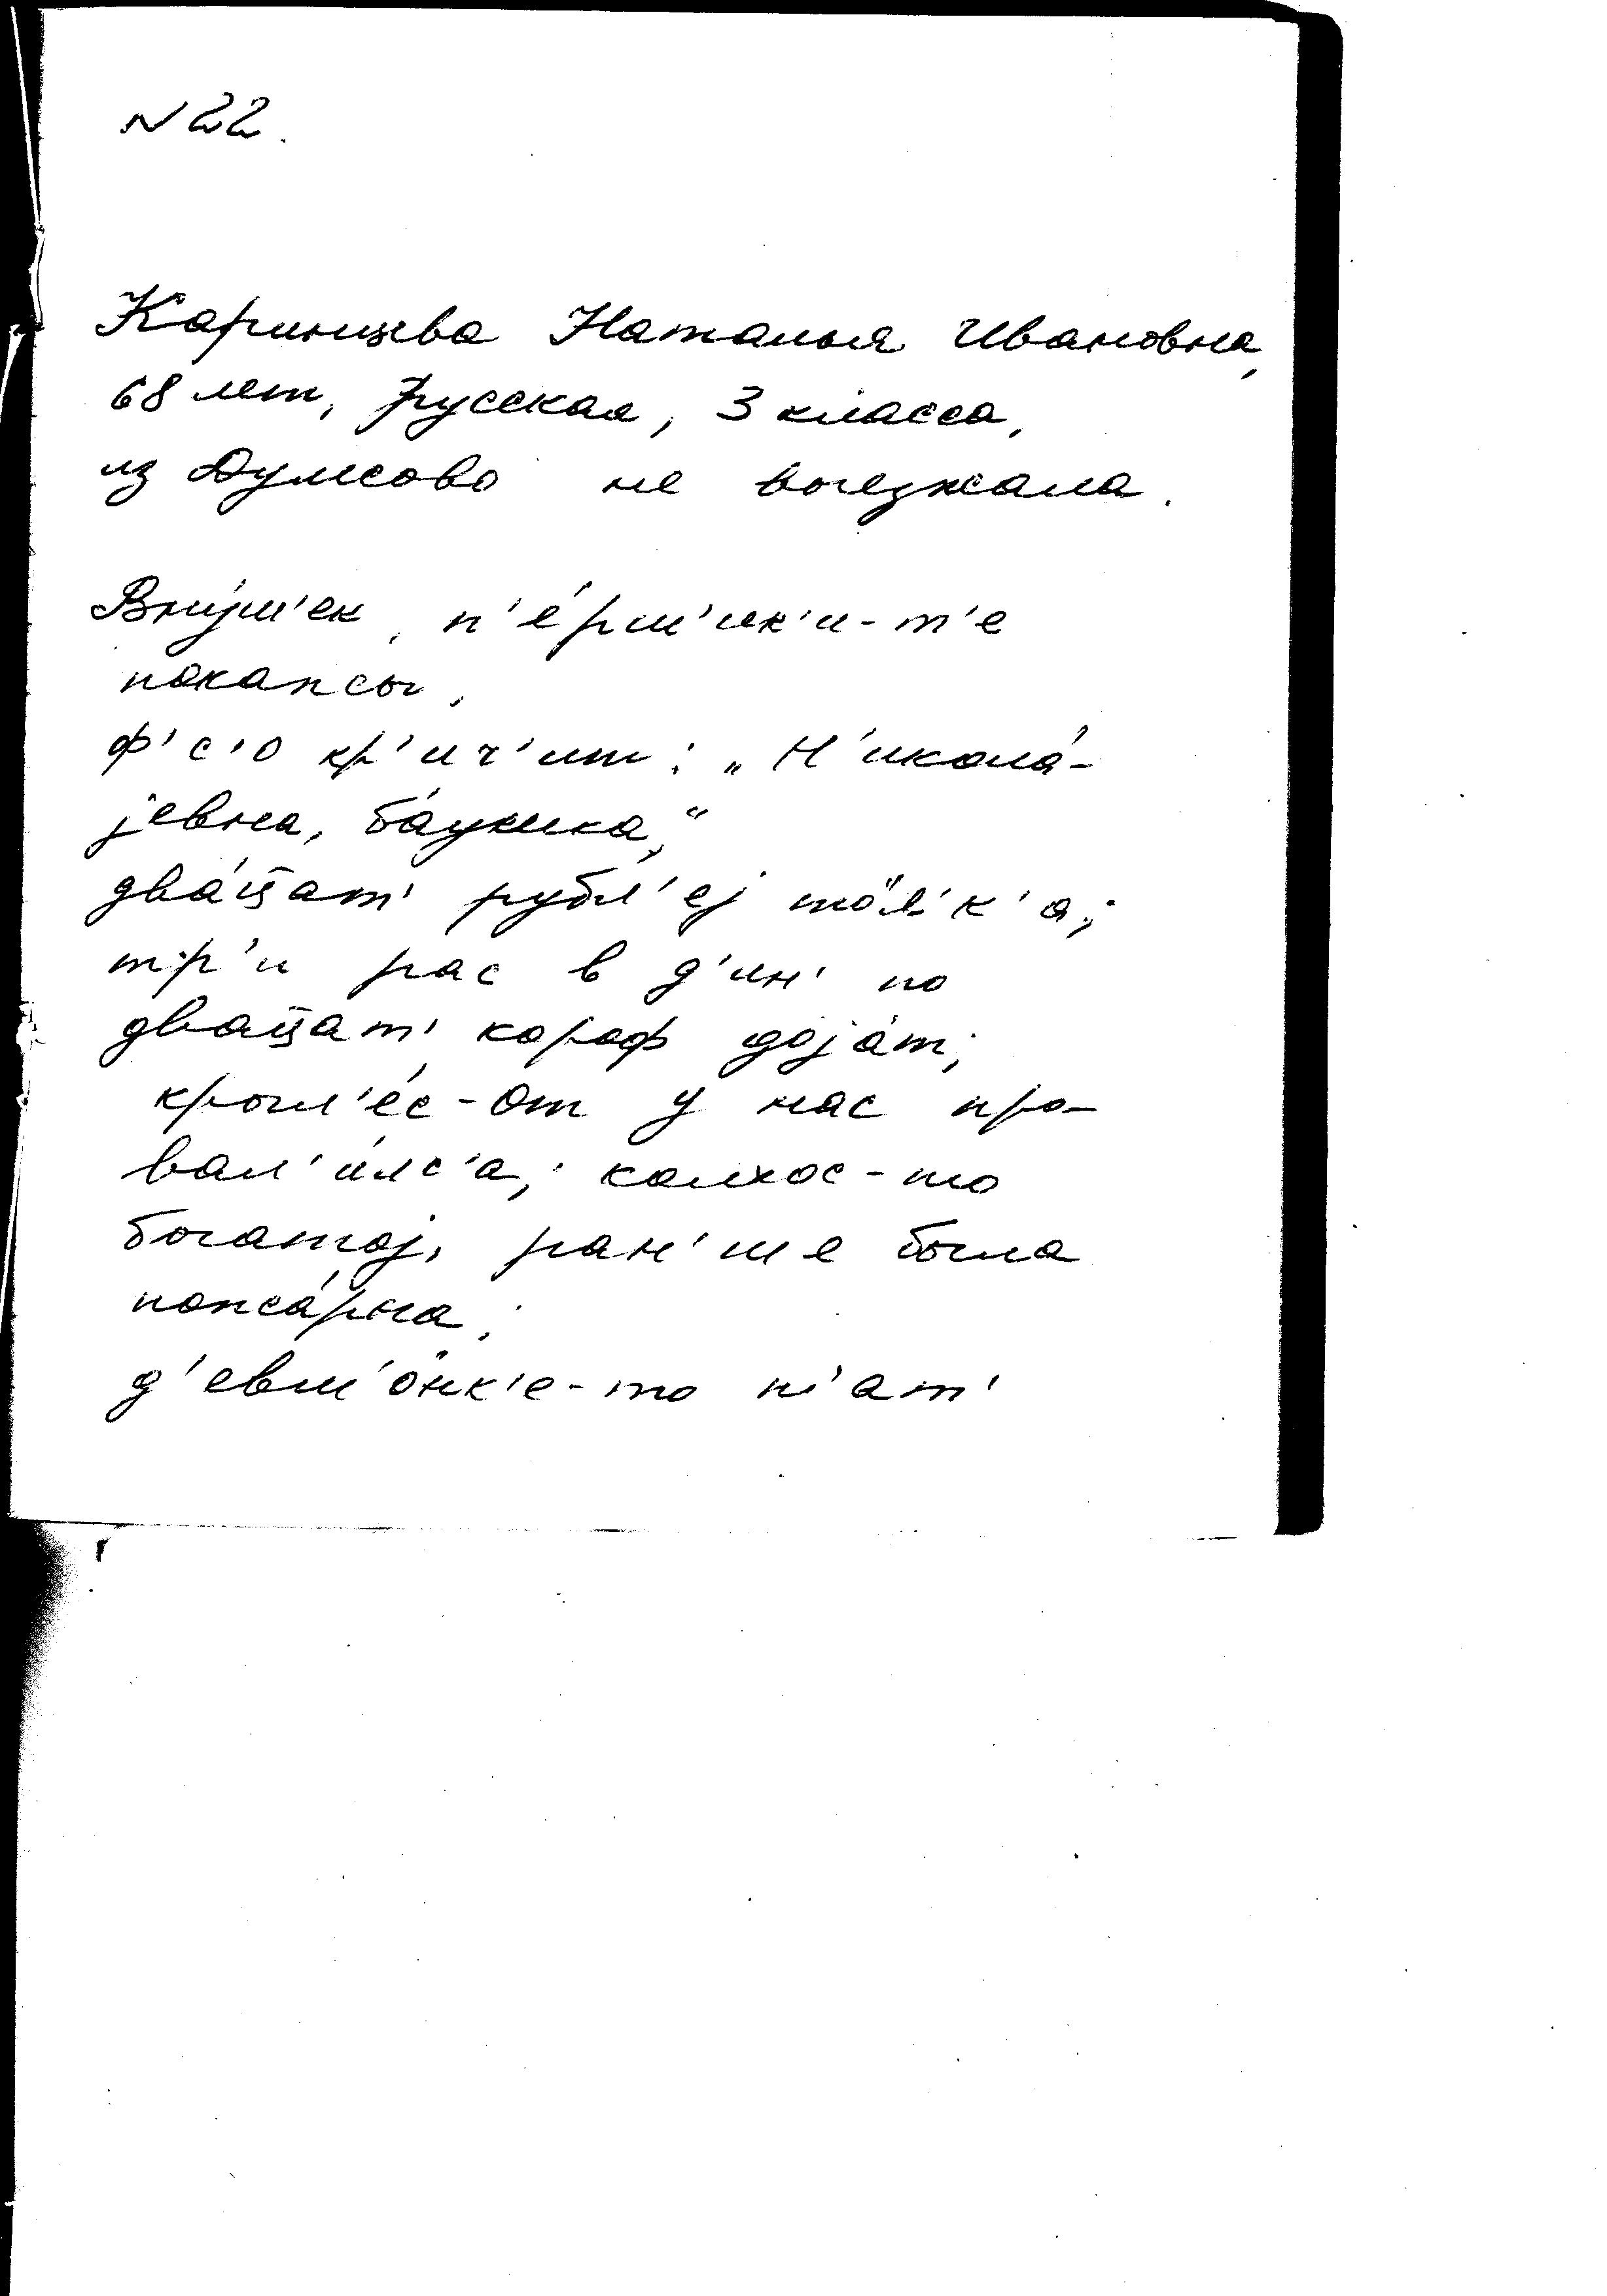 N 22.
Каринцева Наталья Ивановна,
68 лет, русская, 3 класса,
из Дулесово не выезжала.
Внуш'ек, п'е́рш'ик'и-т'е
покапсы,
ф'с'о кр'ич'ит: „Н'икола́-
јевна, ба́ушка,“
два́ц̄ат' рубл'еј то́л'к'а;
тр'и рас в д'ин' по
двац̄ат' кораф дојат;
крыл'е́с-от у нас про-
вал'и́лс'а; колхос-то
богатој, ран'ше была
пожа́рна;
д'евш'о́нк'е-то п'ат'